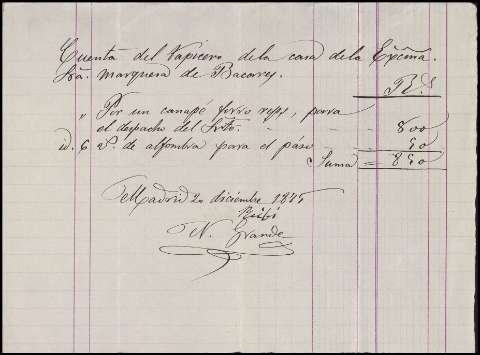 Cuenta del Tapicero de la casa de la Excma.
Sra. Marquesa de Bacares.
Rs.
" Por un canapé forro reps, para
el despacho del Srto. - - - 800
id. 6 vs. de alfombra para el páso - - 50
Suma = 850
Madrid 20 diciembre 1875
Recibí
N. Grande